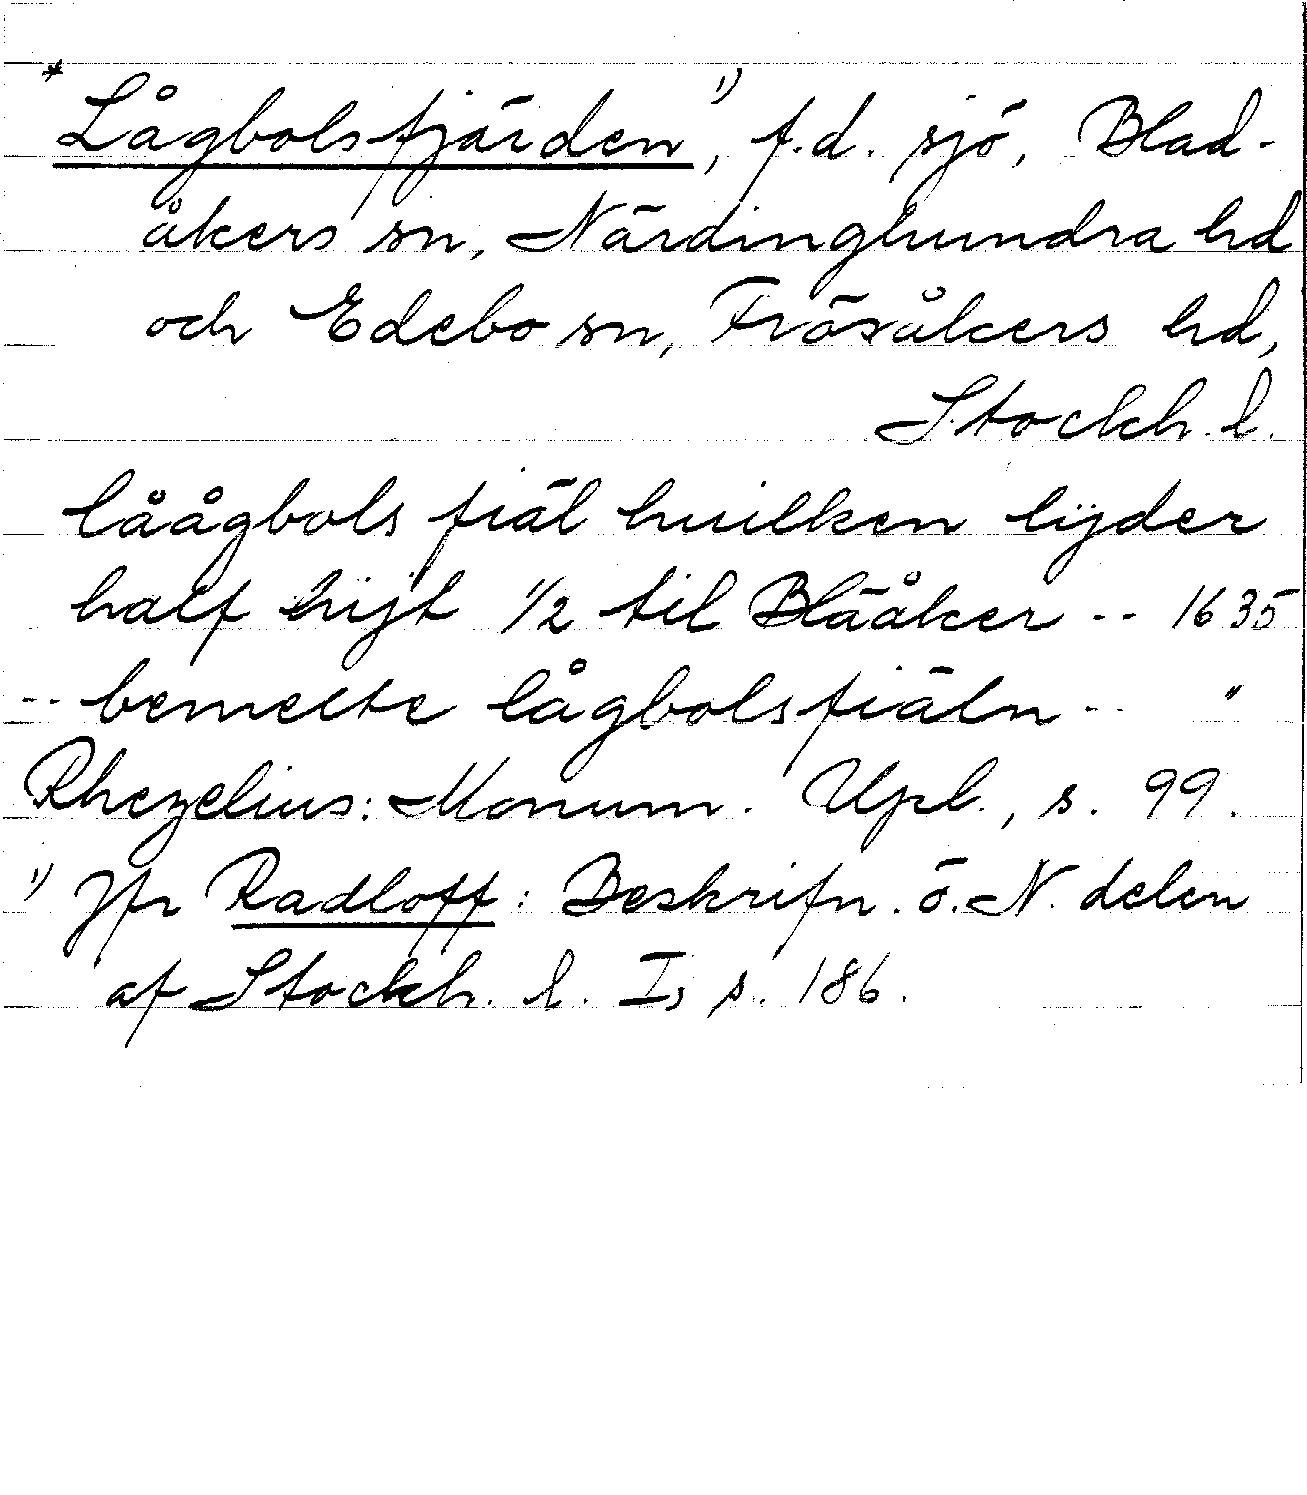 *Lågbolsfjärden¹⁾, f.d. sjö, Blad-
åkers sn, Närdinghundra hd
och Edebo sn, Frösåkers hd,
Stockh. l.
låågbols fiäl huilken lyder
half hijt 1/2 til Blååker -- 1635
-- bemelte lågbolsfiäln -- "
Rhezelius: Monum. Upl., s. 99.
¹⁾ Jfr Radloff: Beskrifn. ö. N. delen
af Stockh. l. I, s. 186.